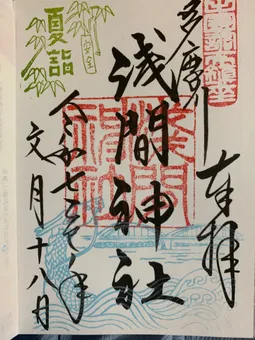 多摩川
奉拝
浅間神社
令和七年
文月十八日
夏詣
浅間神社